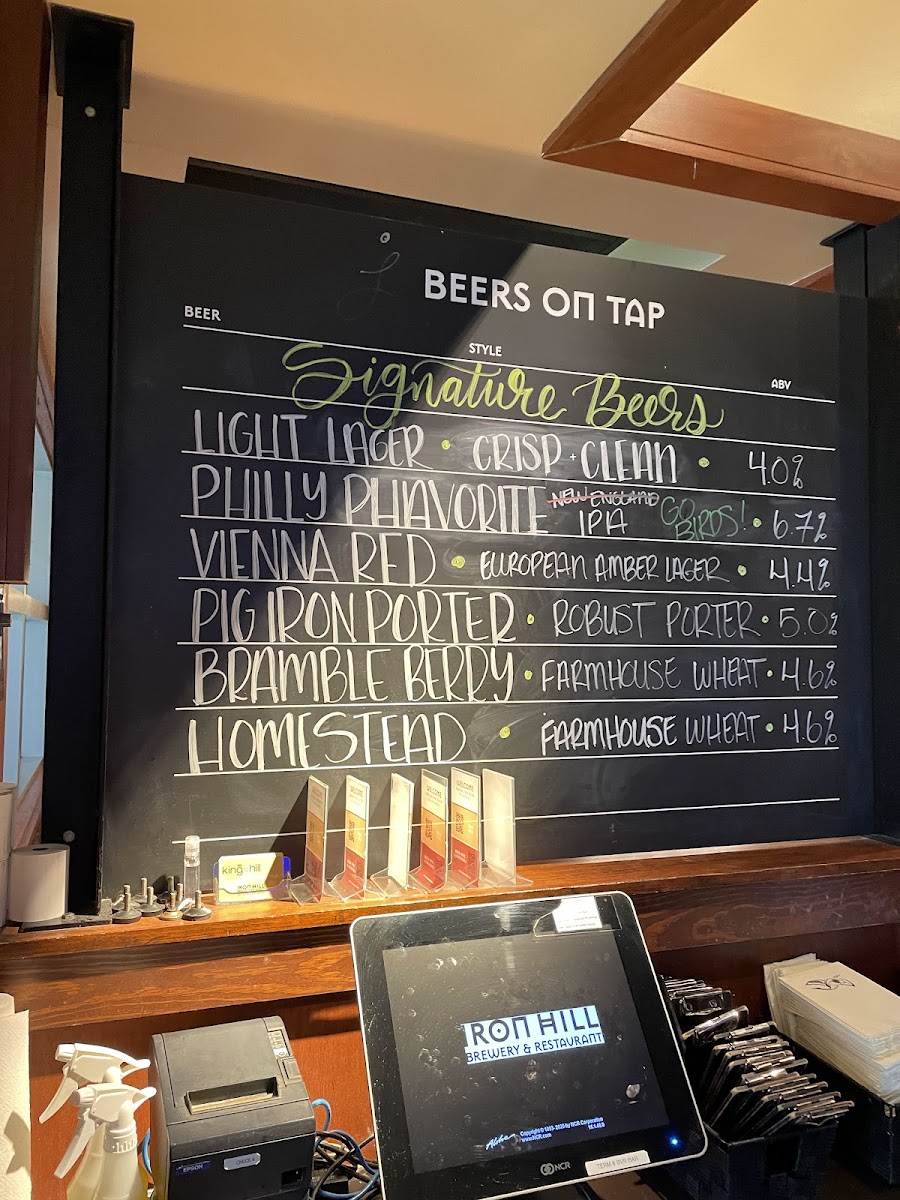 BEERS ON TAP
BEER
STYLE
ABV
Signature Beers
LIGHT LAGER • CRISP + CLEAN • 4.0%
PHILLY PHAVORITE NEW ENGLAND IPA GO BIRDS! • 6.7%
VIENNA RED • EUROPEAN AMBER LAGER • 4.4%
PIG IRON PORTER • ROBUST PORTER • 5.0%
BRAMBLE BERRY • FARMHOUSE WHEAT • 4.6%
HOMESTEAD • FARMHOUSE WHEAT • 4.6%
WELCOME
WELCOME
king of the hill
IRON HILL
IRON HILL
BREWERY & RESTAURANT
Aloha
www.NCR.com
NCR
TERM 4 BVR BAR
EPSON